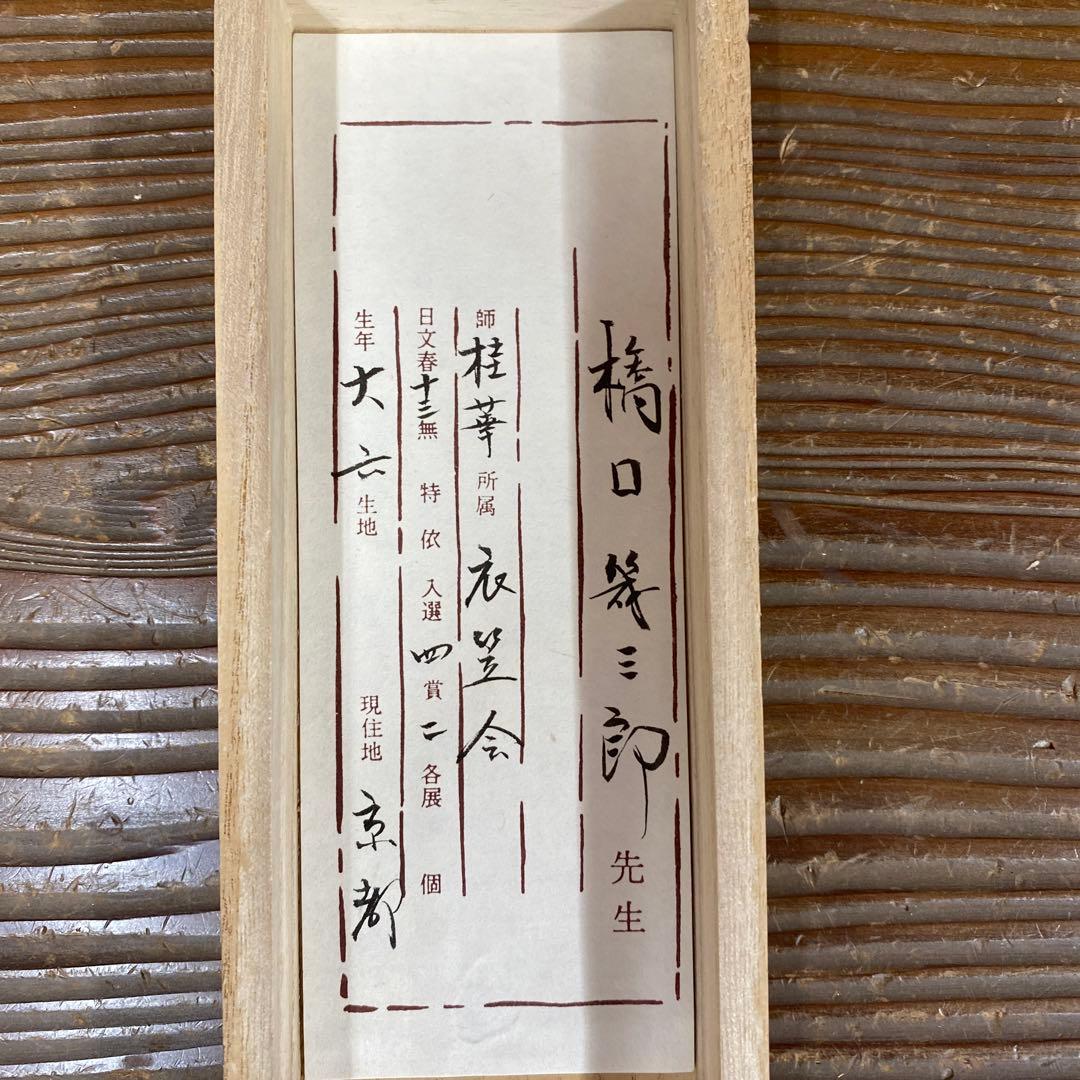 橋口幾三郎先生
師桂華所属衣笠会
日文春十三無特依入選四賞二各展個
生年大六生地現住地京都